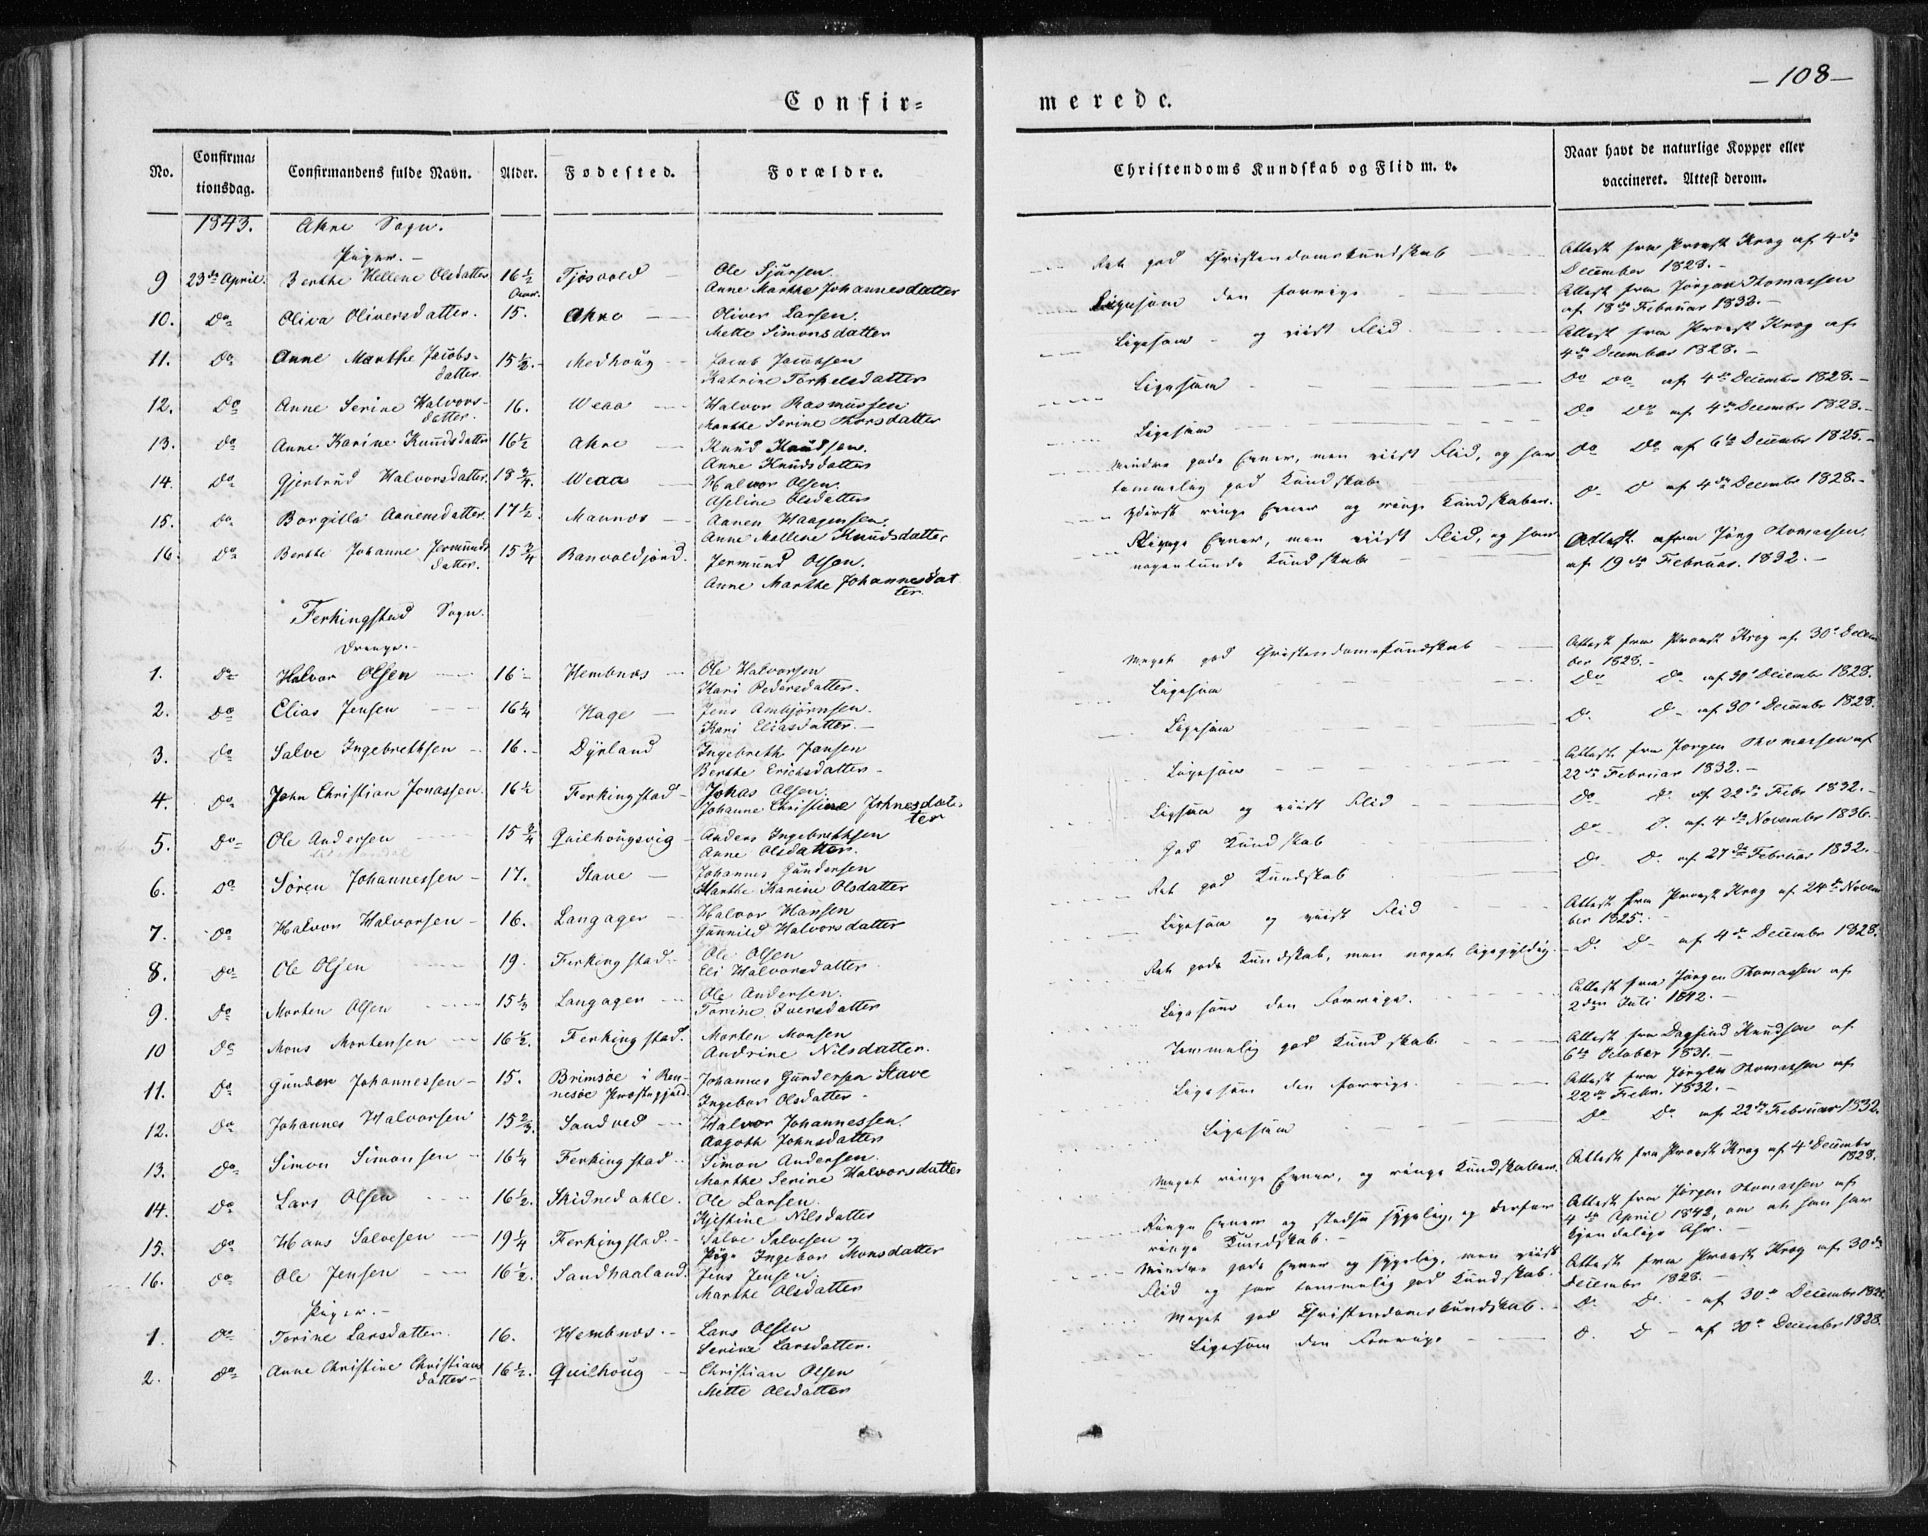 — 108 —
Confir=
merede.
No.
Confirma=
tionsdag.
Confirmandens fulde Navn.
Alder.
Fødested.
Forældre.
Christendoms Kundskab og Flid m. v.
Naar havt de naturlige Kopper eller
vaccineret. Attest derom.
1843. Akre Sogn.
Piger. —
9 23de April. Berthe Hellene Olsdatter 16 1/2 Tjøsvold — Ole Sjursen.
Anne Marthe Johannesdatter
Ret god Christendomskundskab
Attest fra Provst Krog af 4de
December 1828. —
10. Do Oliva Oliversdatter. 15. Akre — Oliver Larsen.
Mette Simonsdatter
Ligesom den forrige
Attest fra Jørgen Thomassen
af 18de Februar 1832. —
11. Do Anne Marthe Jacobs-
datter. 15 1/2. Medhoug Jacob Jacobsen
Katrine Torkelsdatter
Ligesom — og viist Flid.
Attest fra Provst Krog af
4de December 1828. —
12. Do Anne Serine Halvors-
datter. 16. Weaa Halvor Rasmussen
Marthe Serine Thorsdatter
Ligesom
Do Do af 4de December 1828. —
13. Do Anne Karine Knudsdatter 16 1/2 Akre — Knud Knudsen.
Anne Knudsdatter
Ligesom
Do Do af 4de Decembr 1828. —
14. Do Gjertrud Halvorsdatter. 18 3/4. Weaa — Halvor Olsen.
Aseline Olsdatter
Mindre gode Evner, men viist Flid, og har
temmelig god Kundskab
Do Do af 6te Decembr 1825. —
15. Do Borgilla Aanensdatter. 17 1/2. Mannes — Aanen Haagensen.
Anne Mallene Knudsdatter
Yderst ringe Evner og ringe Kundskaber.
D. D af 4de Decembr 1828. —
16. Do Berthe Johanne Jermunds
datter. 15 3/4 Ranvoldfjord. Jermund Olsen.
Anne Marthe Johannesdat
ter.
Ringe Evner, men viist Flid, og har
nogenlunde Kundskab
Attest fra Jørg Thomassen
af 19de Februar. 1832. —
Ferkingstad Sogn.
Drenge. —
1. Do Halvor Olsen 16 Hembnes — Ole Halvorsen
Kari Pedersdatter.
Meget god Christendomskundskab
Attest fra Provst Krog af 30te Decem
ber 1828. —
2. Do Elias Jensen 16 1/4 Hage — Jens Ambjørnsen.
Kari Eliasdatter. —
Ligesom
Do Do af 30te Decembr 1828.
3. Do Salve Ingebrethsen 16. Dyrland Ingebreth Jansen
Berthe Erichsdatter —
Ligesom
D. D — af 30te Decembr 1828.
4. Do John Christian Jonassen. 16 1/2 Ferkingstad — Johas Olsen.
Johanne Christine Johnesdat-
ter
Ligesom
Attest fra Jørgen Thomassen af
22de Februar 1832. —
5. Do Ole Andersen 15 3/4 Quilhougsvig — Anders Ingebrethsen
Anne Olsdatter.
Ligesom og viist Flid
Do D. af 22de Febr 1832. —
6. Do Søren Johannessen — 17. Stave — Johannes Gundersen
Marthe Karine Olsdatter
God Kundskab
Do D. af 4de Novembr 1836.
7. Do Halvor Halvorsen — 16. Langager — Halvor Hansen
Gunnild Halvorsdatter
Ret god Kundskab
D. D. af 27de Februar 1832. —
8. Do Ole Olsen 19. Ferkingstad Ole Olsen
Eli Halvorsdatter
Ligesom og viist Flid
Attest fra Provst Krog af 24de Novem
ber 1825.
9. Do Morten Olsen 15 1/3 Langager Ole Andersen.
Torine Iversdatter
Ret gode Kundskab, men noget ligegyldig.
D. D — af 4de Decembr 1828.
10 Do Mons Mortensen 16 1/2. Ferkingstad. Morten Monsen
Andrine Nilsdatter.
Ligesom den Forrige.
Attest fra Jørgen Thomassen af
2den Juli 1842. —
11. Do Gunder Johannessen — 15. Brimsøe i Ren-
nesøe Præstegjæld. Johannes Gundersen Stave
Ingebor Olsdatter —
Temmelig god Kundskab
Attest fra Dagfind Knudsen af
6te October 1831. —
12. Do Johannes Halvorsen 15 2/3. Sandved Halvor Johannessen.
Aagoth Johnsdatter
Ligesom den forrige.
Attest fra Jørgen Thomassen af
22de Febr. 1832. —
13. Do Simon Simonsen 16 1/4 Ferkingstad Simon Andersen.
Marthe Serine Halvorsdatter
Ligesom
Do Do af 22de Februar 1832.
14. Do Lars Olsen 16 1/2. Skidnedahle. Ole Larsen
Kjestine Nilsdatter
Meget ringe Evner, og ringe Kundskaber.
Attest fra Provst Krog af 4de Decembr
1828.
15. Do Hans Salvesen 19 1/4 Ferkingstad. Salve Salvesen og
Pige Ingebor Monsdatter
Ringe Evner og stedse sygelig, og derfor
ringe Kundskab. —
Attest fra Jørgen Thomassen af
4de April 1842, om at han har
kjendelige Ahr. —
16. Do Ole Jensen 16 1/2. Sandhaaland. Jens Jensen
Marthe Olsdatter
Mindre gode Evner og sygelig, men viist
Flid og har temmelig god Kundskab.
Attest fra Provst Krog af 30te
December 1828. —
Piger. —
1. Do Torine Larsdatter. 16. Hembnes. — Lars Olsen
Serine Larsdatter.
Meget god Christendomskundskab. —
D. D. — af 30te December 1828
2. Do Anne Christine Christians
datter — 16 1/2. Quilhoug Christian Olsen
Mette Olsdatter
Ligesom den Forrige
D. D — af 30te December 1828.